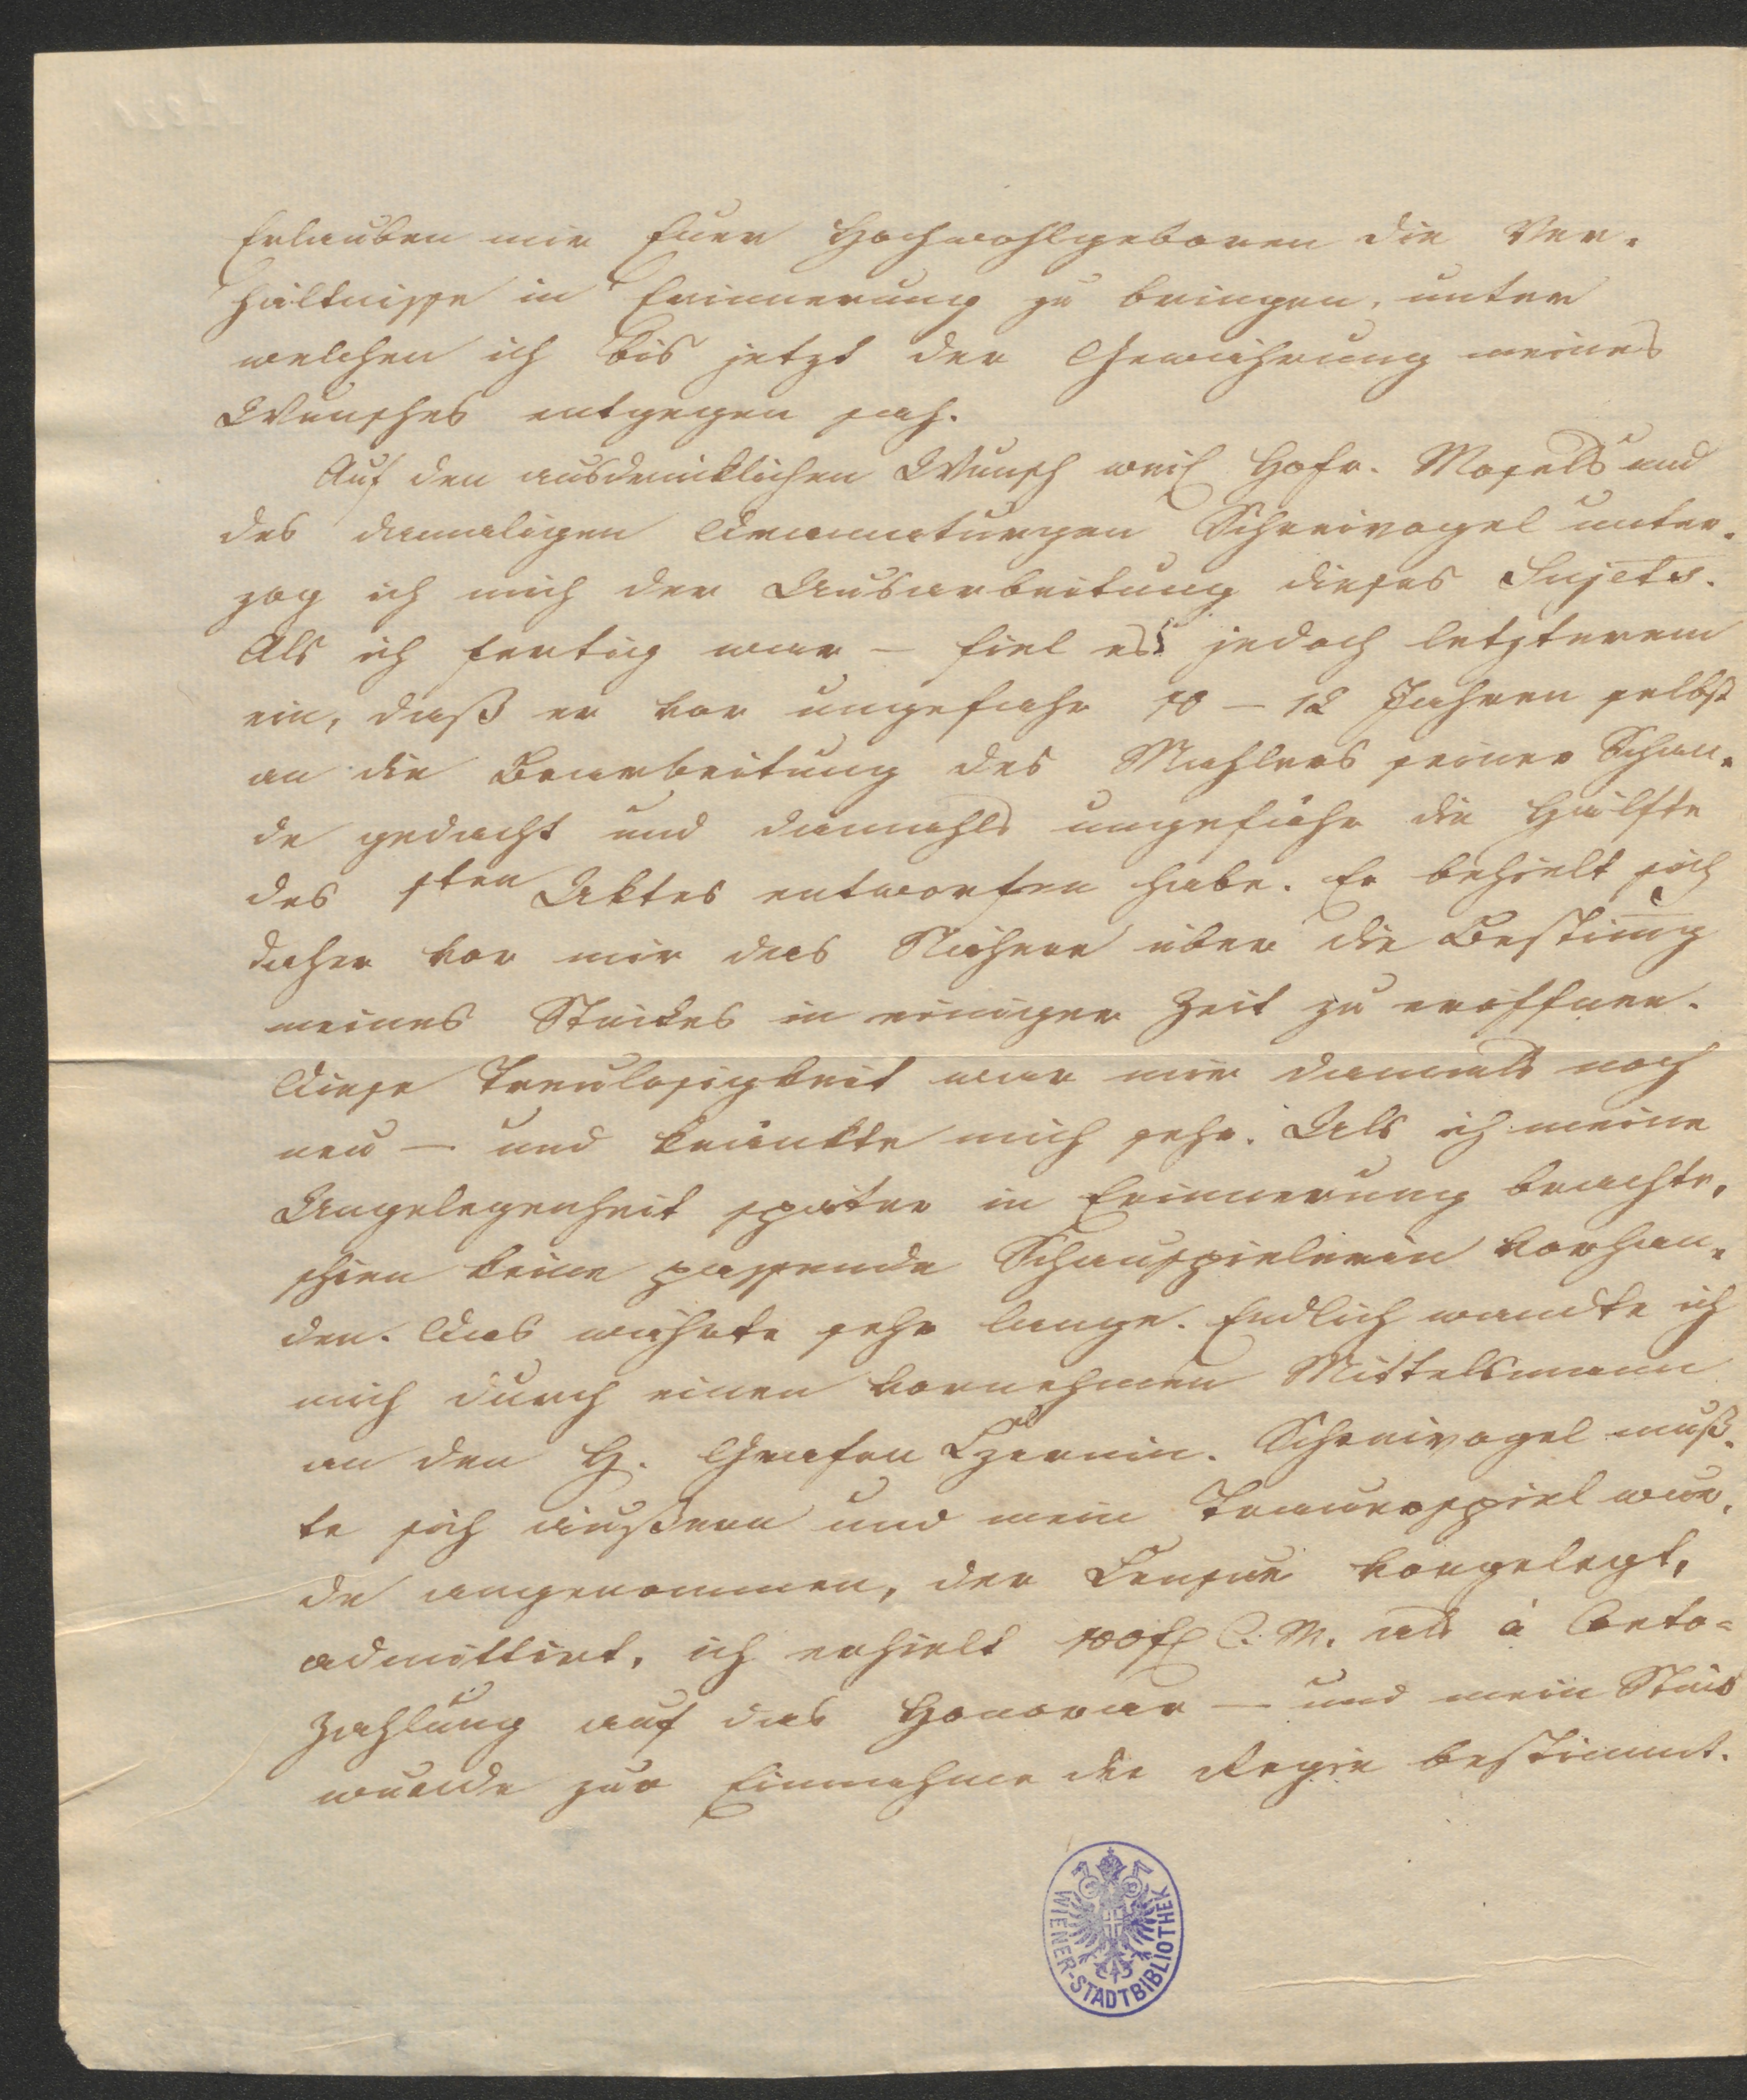 Erlauben mir Euer Hochwohlgeboren die Ver-
hältnisse in Erinnerung zu bringen, unter
welchen ich bis jetzt der Gewährung meines
Wunsches entgegen sah.
Auf den ausdrücklichen Wunsch Hofr. Mosels und
des damaligen Dramaturgen Schreivogel unter-
zog ich mich der Ausarbeitung dieses Sujets.
Als ich fertig war — fiel es jedoch letzterem
ein, daß er vor ungefähr 10 — 12 Jahren selbst
an die Bearbeitung des Mahlers seiner Schan-
de gedacht und damahls ungefähr die Hälfte
des 1sten Aktes entworfen habe. Er behielt sich
daher vor mir das Nähere über die Bestim̅ung
meines Stückes in einiger Zeit zu eröffnen.
Diese Treulosigkeit war mir damals noch
neu — und kränkte mich sehr. Als ich meine
Angelegenheit später in Erinnerung brachte,
schien keine passende Schauspielerin vorhan-
den. Das währte sehr lange. Endlich wandte ich
mich durch einen vornehmen Mittelsmann
an den H. Grafen Czernin. Schreivogel muß-
te sich äußern und mein Trauerspiel wur-
de angenommen, der Censur vorgelegt,
admittirt, ich erhielt 100 fl C. M. als à Conto=
Zahlung auf das Honorar — und mein Stück
wurde zur Einnahme der Regie bestimmt.
WIENER-STADTBIBLIOTHEK